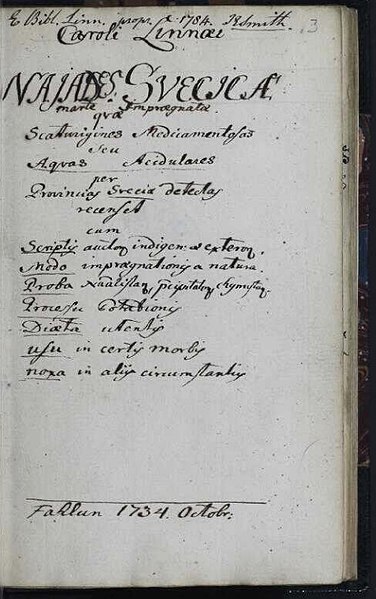 E Bibl. Linn. propr. 1784. JESmith.
3
Caroli Linnæi
NAJADES SVECICÆ
marte Imprægnatæ
quæ
Scaturigines Medicamentosas
seu
Aquas Acidulares
per
Provincias Sveciæ detectas
recenset
cum
Scriptis auctor indigen: & exteror
Modo imprægnationis a natura
Proba
Processu Potationis
Diæta utentis
usu in certis morbis
noxa in aliis circumstantiis
Fahlun 1734. Octobr: